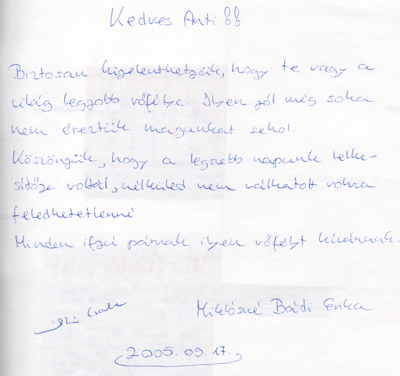 Kedves Anti!!
Biztosan kijelenthetjük, hogy te vagy a
világ legjobb vőfélye. Ilyen jól még soha
nem éreztük magunkat sehol.
Köszönjük, hogy a legszebb napunk lelke-
sítője voltál, nélküled nem válhatott volna
feledhetetlenné.
Minden ifjú párnak ilyen vőfélyt kívánunk.
Miklósné Bódi Erika
2005.09.17.